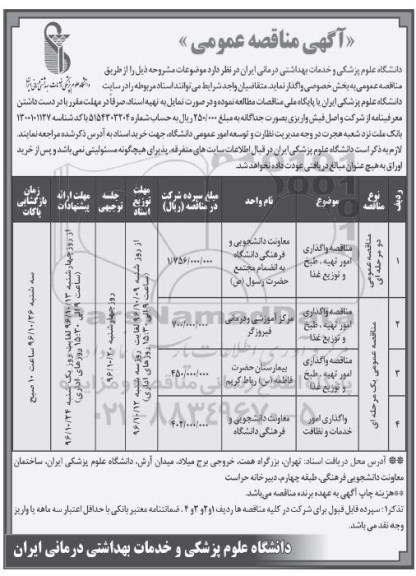 «آگهی مناقصه عمومی»
دانشگاه علوم پزشکی و خدمات بهداشتی درمانی ایران در نظر دارد موضوعات مشروحه ذیل را از طریق
مناقصه عمومی به بخش خصوصی واگذار نماید. متقاضیان واجد شرایط می توانند اسناد مربوطه را در سایت
دانشگاه علوم پزشکی ایران یا پایگاه ملی مناقصات مطالعه نموده و در صورت تمایل به تهیه اسناد، صرفاً در مهلت مقرر با در دست داشتن
معرفینامه از شرکت و اصل فیش واریزی بصورت جداگانه به مبلغ ۲۵۰/۰۰۰ ریال به حساب شماره ۵۱۵۴۳۰۳۲۰۴ با کد شناسه ۱۳۰۰۱۰۱۱۲۷
بانک ملت نزد شعبه هجرت در وجه مدیریت نظارت و توسعه امور عمومی دانشگاه، جهت خرید اسناد به آدرس ذکر شده مراجعه نمایند.
لازم به ذکر است دانشگاه علوم پزشکی ایران در قبال اطلاعات سایت های متفرقه، پذیرای هیچگونه مسئولیتی نمی باشد و پس از خرید
اوراق به هیچ عنوان مبالغ دریافتی عودت داده نخواهد شد.
ردیف
نوع مناقصه
موضوع
نام واحد
مبلغ سپرده شرکت در مناقصه (ریال)
مهلت توزیع اسناد
جلسه توجیهی
مهلت ارائه پیشنهادات
زمان بازگشایی پاکات
۱
مناقصه عمومی دو مرحله ای
مناقصه واگذاری امور تهیه، طبخ و توزیع غذا
معاونت دانشجویی و فرهنگی دانشگاه به انضمام مجتمع حضرت رسول (ص)
۱/۷۵۶/۰۰۰/۰۰۰
۲
مناقصه عمومی یک مرحله ای
مناقصه واگذاری امور تهیه، طبخ و توزیع غذا
مرکز آموزشی و درمانی فیروزگر
۷۰۰/۰۰۰/۰۰۰
۳
مناقصه واگذاری امور تهیه، طبخ و توزیع غذا
بیمارستان حضرت فاطمه (س) رباط کریم
۴۵۰/۰۰۰/۰۰۰
۴
واگذاری امور خدمات و نظافت
معاونت دانشجویی و فرهنگی دانشگاه
۴۰۲/۰۰۰/۰۰۰
از روز شنبه ۹۶/۱۰/۰۹ لغایت روز سه شنبه ۹۶/۱۰/۱۲ (ساعت ۹ الی ۱۵:۳۰ روزهای اداری)
روز چهارشنبه ۹۶/۱۰/۲۰
از روز چهارشنبه ۹۶/۱۰/۱۳ لغایت روز یکشنبه ۹۶/۱۰/۲۴ (ساعت ۹ الی ۱۵:۳۰ روزهای اداری)
سه شنبه ۹۶/۱۰/۲۶ ساعت ۱۰ صبح
** آدرس محل دریافت اسناد: تهران، بزرگراه همت، خروجی برج میلاد، میدان آرش، دانشگاه علوم پزشکی ایران، ساختمان
معاونت دانشجویی فرهنگی، طبقه چهارم، دبیرخانه حراست
**هزینه چاپ آگهی به عهده برنده مناقصه می باشد.
تذکر۱: سپرده قابل قبول برای شرکت در کلیه مناقصه ها ردیف ۱و۲و ۳و ۴ ، ضمانتنامه معتبر بانکی با حداقل اعتبار سه ماهه یا واریز
وجه نقد می باشد.
دانشگاه علوم پزشکی و خدمات بهداشتی درمانی ایران